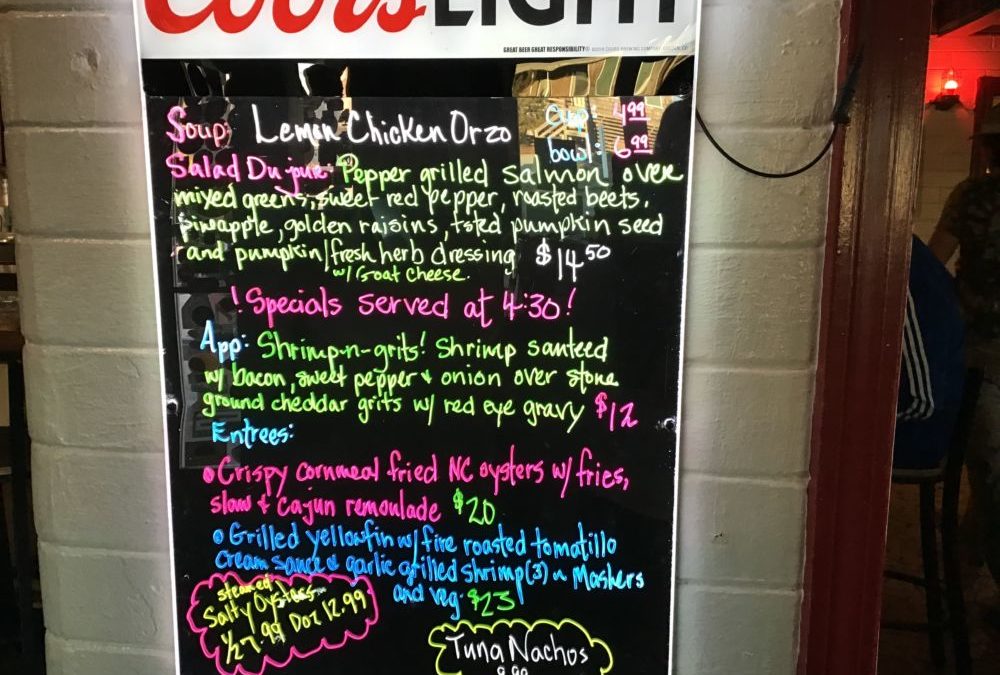 Coors LIGHT
GREAT BEER GREAT RESPONSIBILITY®
Soup: Lemon Chicken Orzo cup: 4.99
bowl: 6.99
Salad Du jour: Pepper grilled salmon over
mixed greens, sweet red pepper, roasted beets,
pineapple, golden raisins, tsted pumpkin seed
and pumpkin/fresh herb dressing $14.50
w/ Goat Cheese.
! Specials served at 4:30!
App: Shrimp-n-grits! Shrimp sauteed
w/ bacon, sweet pepper & onion over stone
ground cheddar grits w/ red eye gravy $12
Entrees:
• Crispy cornmeal fried NC oysters w/ fries,
slaw & Cajun remoulade $20
• Grilled yellowfin w/ fire roasted tomatillo
cream sauce & garlic grilled shrimp (3) ~ Mashers
and veg. $23
steamed
Salty Oysters
1/2 7.99 Doz 12.99
Tuna Nachos
9.99